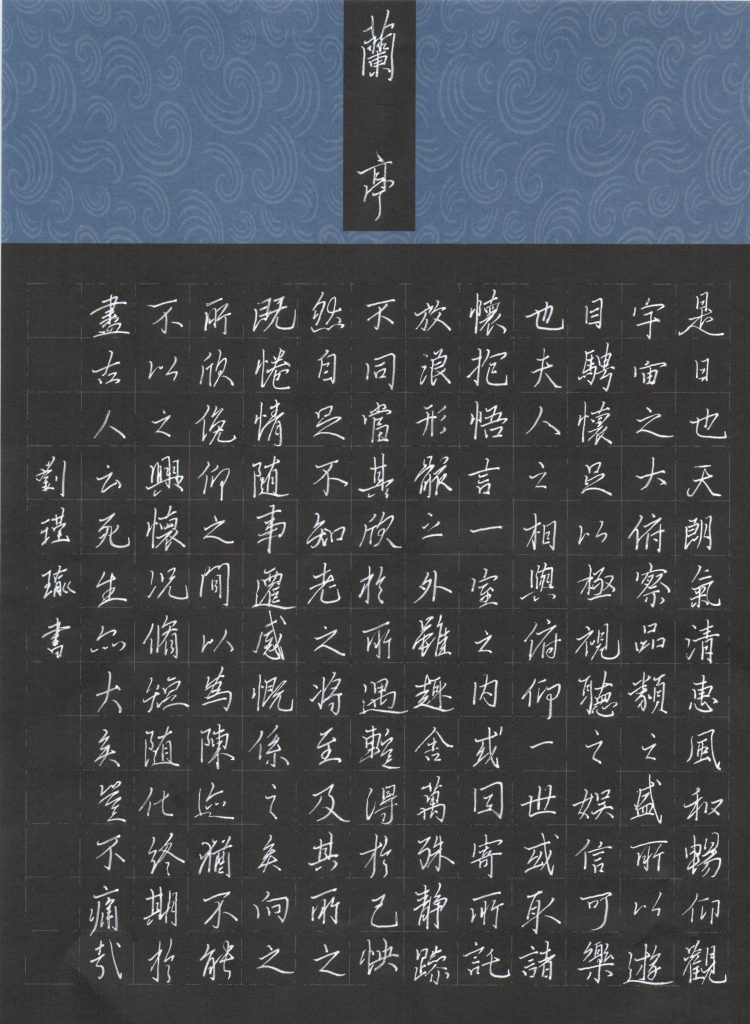 蘭亭
是日也天朗氣清惠風和暢仰觀
宇宙之大俯察品類之盛所以遊
目騁懷足以極視聽之娛信可樂
也夫人之相與俯仰一世或取諸
懷抱悟言一室之內或因寄所託
放浪形骸之外雖趣舍萬殊靜躁
不同當其欣於所遇暫得於己怏
然自足不知老之將至及其所之
既惓情随事遷感慨係之矣向之
所欣俛仰之間以為陳迹猶不能
不以之興懷況脩短随化終期於
盡古人云死生亦大矣豈不痛哉
劉瑾瑜書